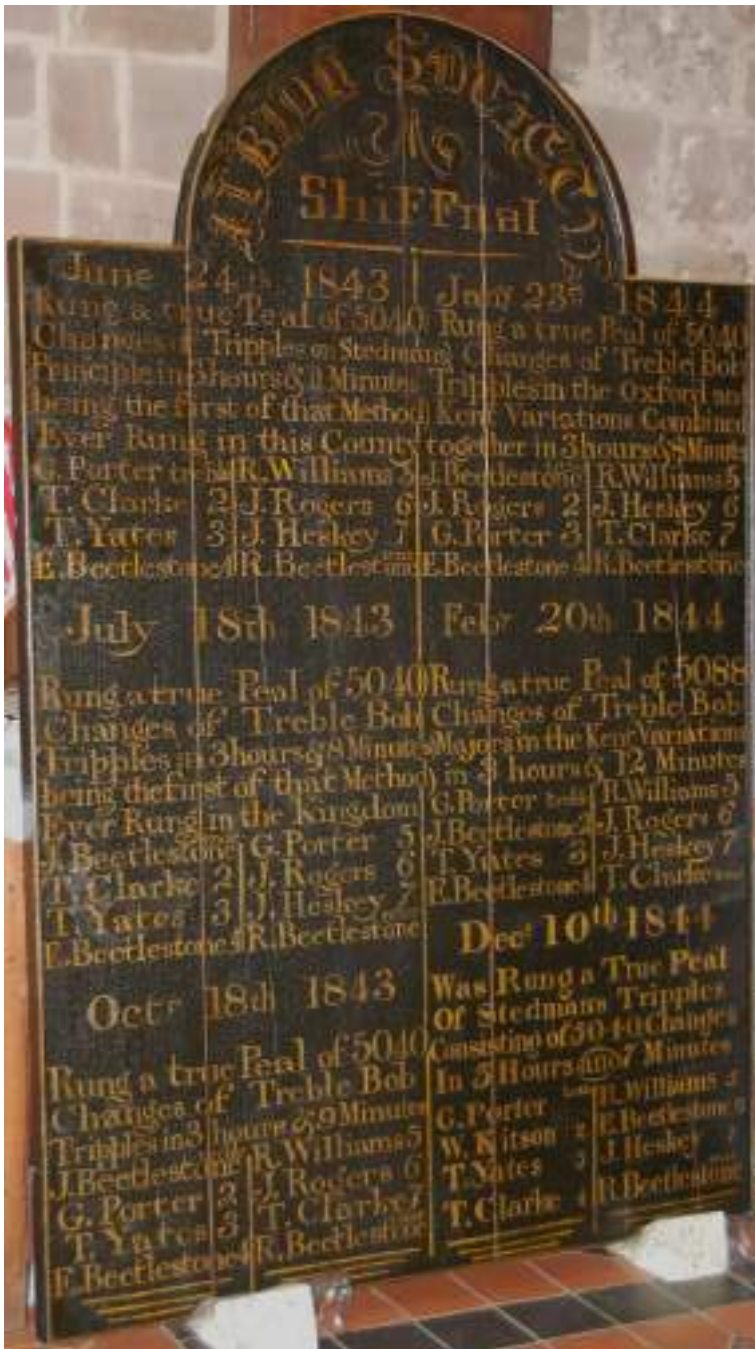 ALBION SOCIETY
Shiffnal
June 24th 1843
Rung a true Peal of 5040
Changes of Tripples on Stedmans
Principle in 3 hours & 11 Minutes
being the first of that Method
Ever Rung in this County
G. Porter treble R. Williams 5
T. Clarke 2 J. Rogers 6
T. Yates 3 J. Heskey 7
E. Beetlestone 4 R. Beetlestone
July 18th 1843
Rung a true Peal of 5040
Changes of Treble Bob
Tripples in 3 hours & 8 Minutes
being the first of that Method
Ever Rung in the Kingdom
J. Beetlestone G. Porter 5
T. Clarke 2 J. Rogers 6
T. Yates 3 J. Heskey 7
E. Beetlestone 4 R. Beetlestone
Octr 18th 1843
Rung a true Peal of 5040
Changes of Treble Bob
Tripples in 3 hours & 9 Minutes
J. Beetlestone R. Williams 5
G. Porter 2 J. Rogers 6
T. Yates 3 T. Clarke 7
E. Beetlestone 4 R. Beetlestone
Jany 23rd 1844
Rung a true Peal of 5040
Changes of Treble Bob
Tripples in the Oxford and
Kent Variations Combined
together in 3 hours & 8 Minutes
J. Beetlestone R. Williams 5
J. Rogers 2 J. Heskey 6
G. Porter 3 T. Clarke 7
E. Beetlestone 4 R. Beetlestone
Febr 20th 1844
Rung a true Peal of 5088
Changes of Treble Bob
Majors in the Kent Variation
in 3 hours & 12 Minutes
G. Porter treble R. Williams 5
J. Beetlestone 2 J. Rogers 6
T. Yates 3 J. Heskey 7
E. Beetlestone 4 T. Clarke
Decr 10th 1844
Was Rung a True Peal
Of Stedmans Tripples
Consisting of 5040 Changes
In 3 Hours and 7 Minutes
G. Porter R. Williams 5
W. Kitson 2 E. Beetlestone 6
T. Yates 3 J. Heskey 7
T. Clarke 4 R. Beetlestone